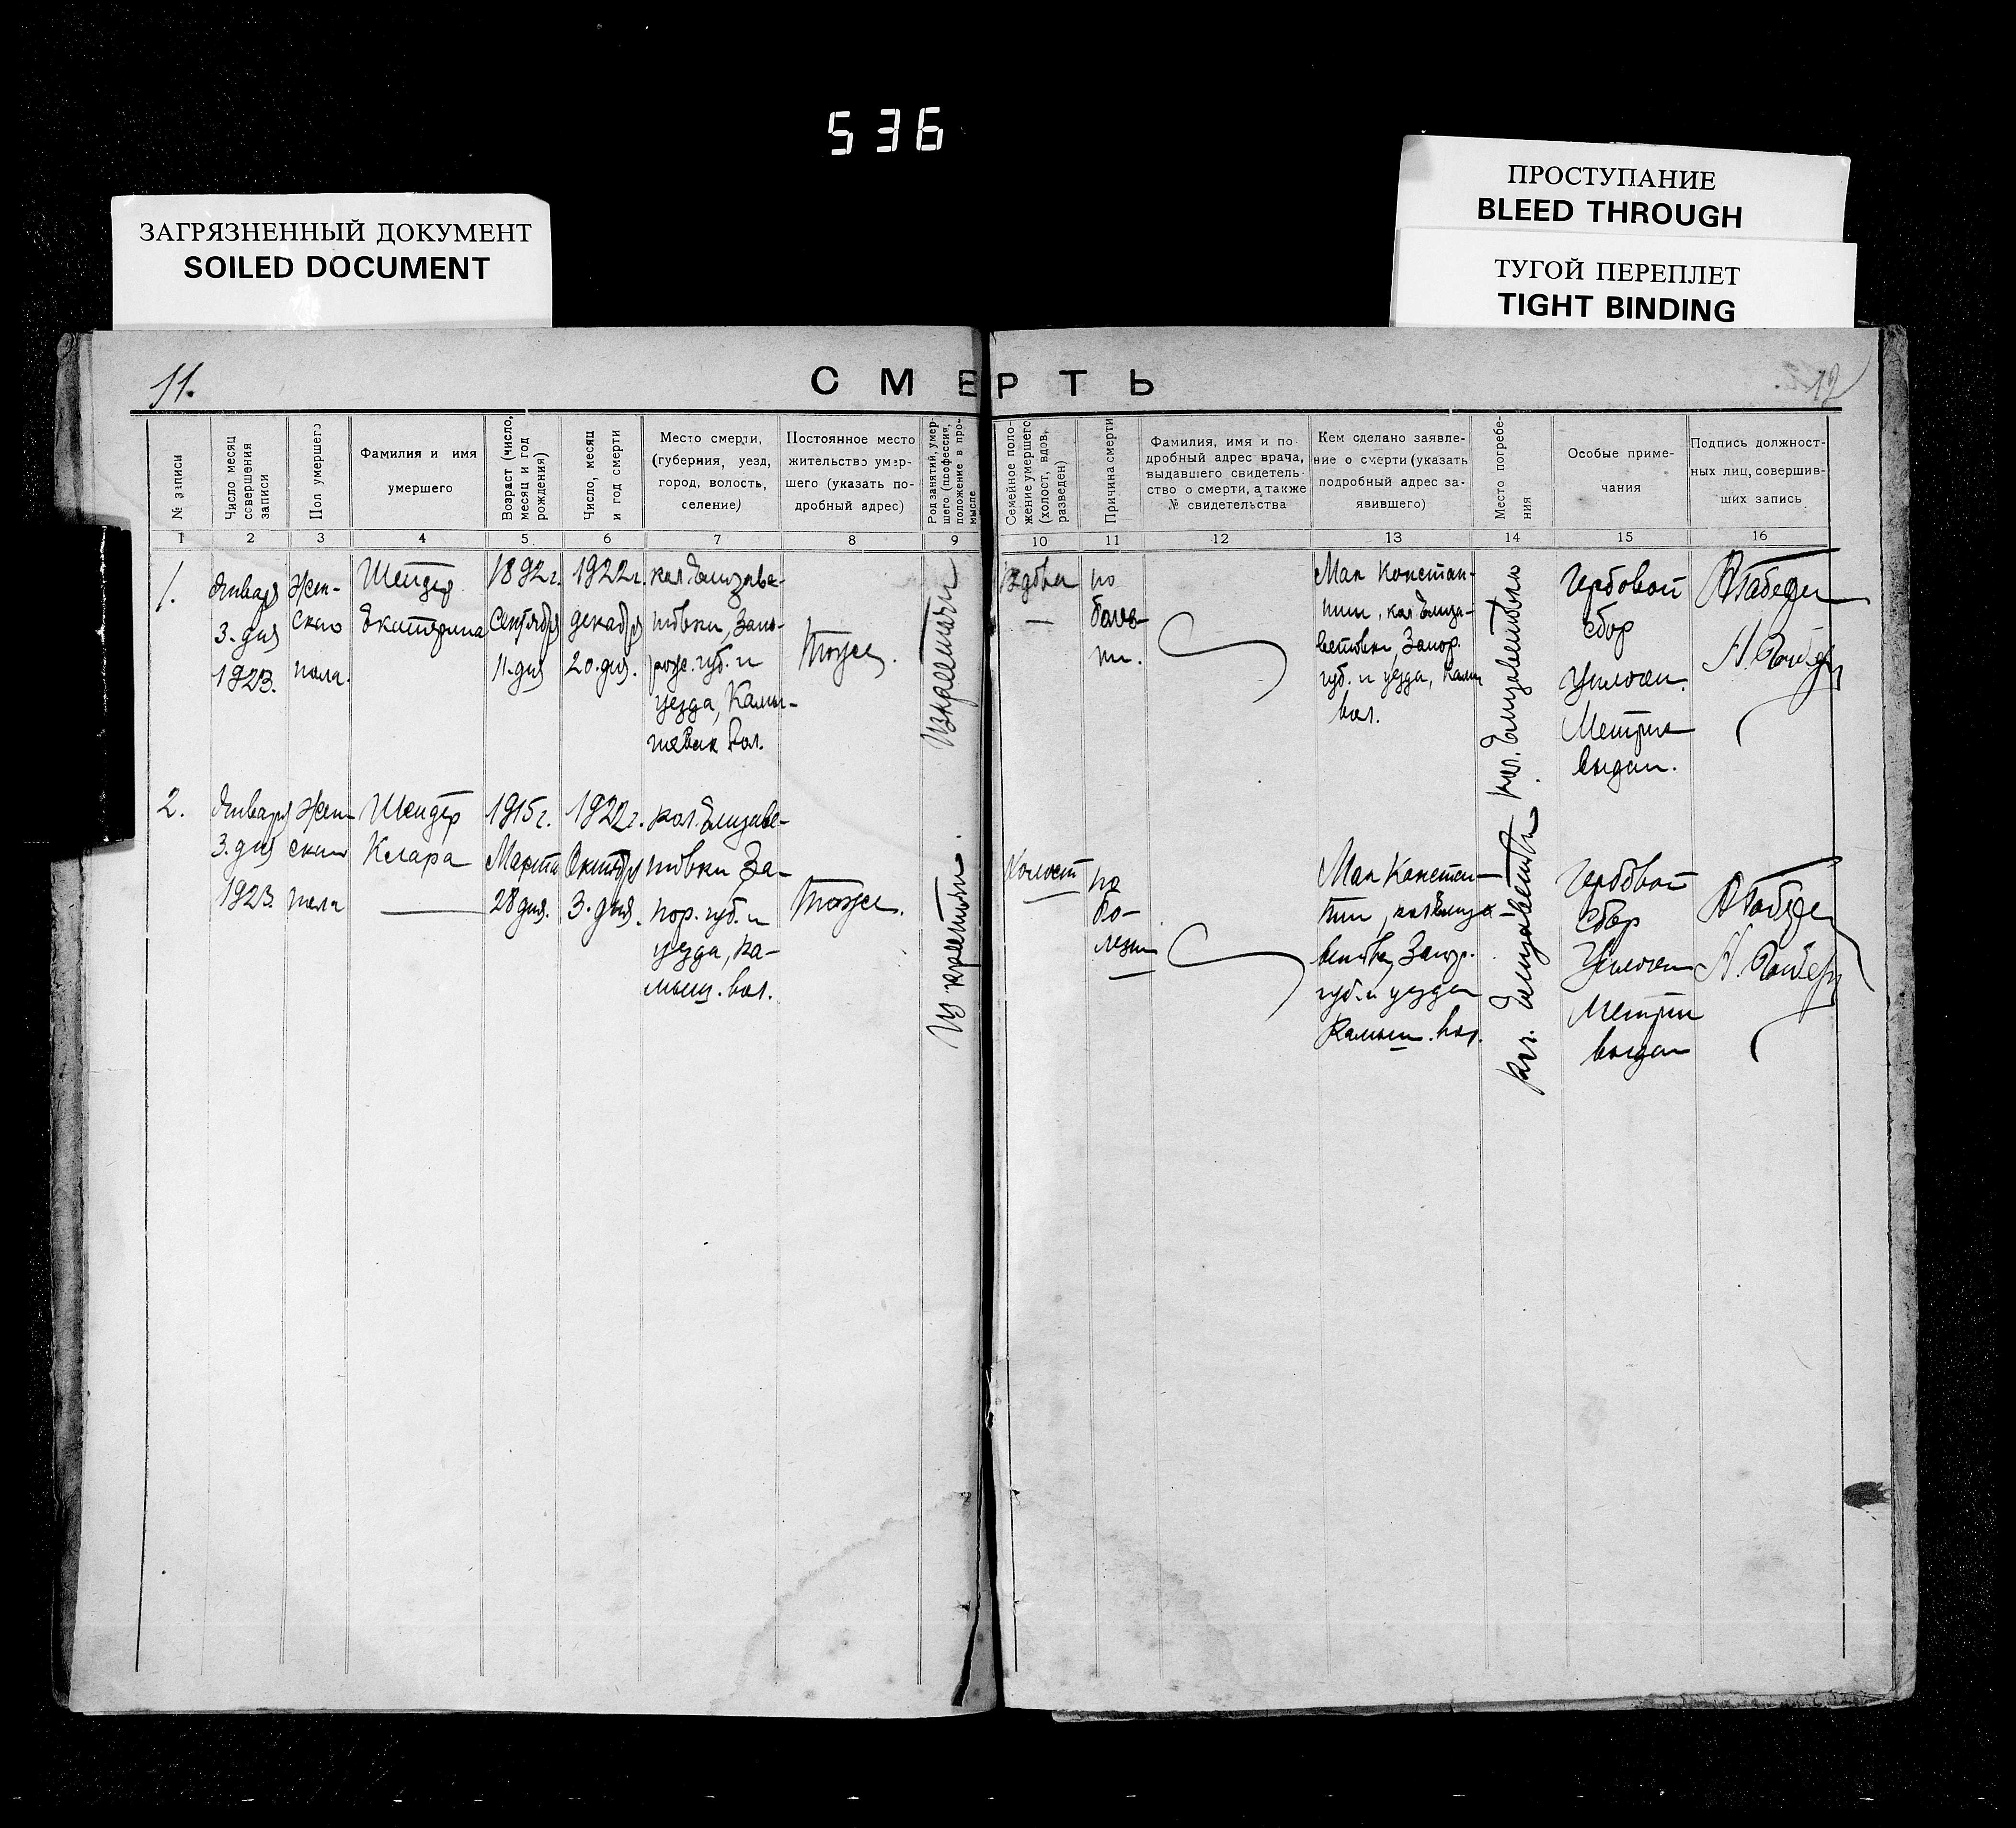 536
ЗАГРЯЗНЕННЫЙ ДОКУМЕНТ
SOILED DOCUMENT
ПРОСТУПАНИЕ
BLEED THROUGH
ТУГОЙ ПЕРЕПЛЕТ
TIGHT BINDING
11.
СМЕРТЬ
12
№ записи
Число месяц
совершения
записи
Пол умершего
Фамилия и имя
умершего
Возраст (число,
месяц и год
рождения)
Число, месяц
и год смерти
Место смерти,
(губерния, уезд,
город, волость,
селение)
Постоянное место
жительство умер-
шего (указать по-
дробный адрес)
Род занятий, умер-
шего (профессия,
положение в про-
мысле
Семейное поло-
жение умершего
(холост, вдов,
разведен)
Причина смерти
Фамилия, имя и по
дробный адрес врача,
выдавшего свидетель-
ство о смерти, а также
№ свидетельства
Кем сделано заявле-
ние о смерти (указать
подробный адрес за-
явившего)
Место погребе-
ния
Особые приме-
чания
Подпись должност-
ных лиц, совершив-
ших запись
1 2 3 4 5 6 7 8 9 10 11 12 13 14 15 16
1.
Января
3. дня
1923.
Жен-
ского
пола.
Шендер
Екатерина
1892 г.
Сентября
11. дня
1922 г.
декабря
20. дня.
кол. Елизаве-
товки, Запо-
рож. губ. и
уезда, Камы-
шевак вол.
Тоже.
Из крестьян
Вдова
по
болез-
ни.
Ман Констан-
тин, кол. Елиза-
ветовки, Запор.
губ. и уезда, Камы
вол.
кол. Елизаветовки
Гербовой
сбор
уплочен.
Метрик
выдан.
2.
Января
3. дня
1923.
Жен-
ского
пола
Шендер
Клара
1915 г.
Марта
28 дня.
1922 г.
Октября
3. дня.
кол. Елизаве-
товки За-
пор. губ. и
уезда, Ка-
мыш. вол.
Тоже.
Из крестьян.
Холост
по
бо-
лезни
Ман Констан-
тин, кол. Елиза-
ветовки Запор.
губ. и уезда
Камыш. вол.
кол. Елизаветовки
Гербовой
сбор
Уплочен
Метрик
выдан